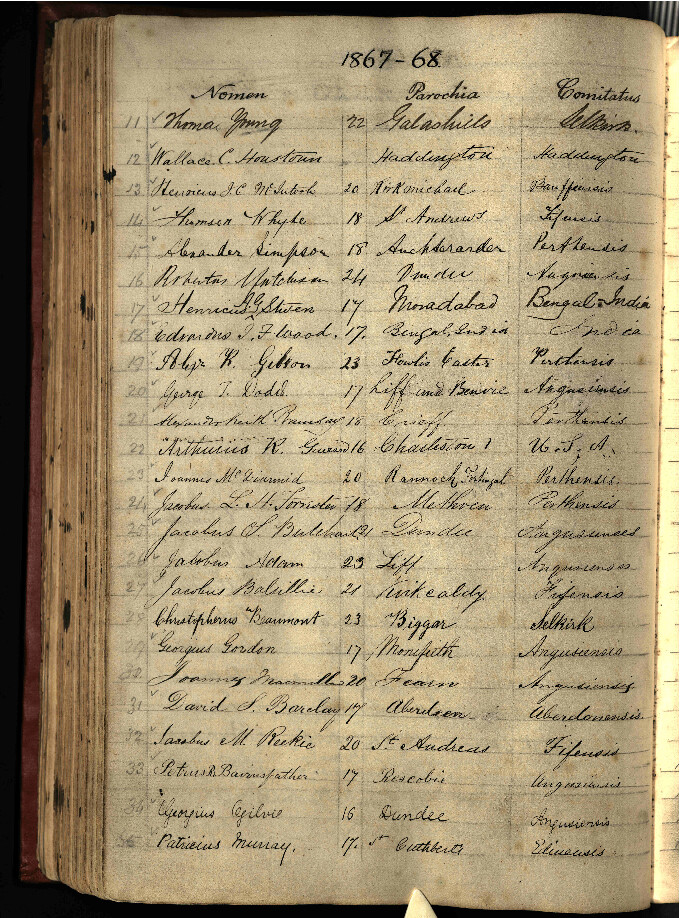 1867-68
Nomen Parochia Comitatus
11 Thomas Young 22 Galashiels Selkirk.
12 Wallace C. Houstoun Haddington Haddington
13 Henricus J. C. McIntosh 20 Kirkmichael Banffiensis
14 Thomson Whyte 18 St Andrews Fifensis
15 Alexander Simpson 18 Auchterarder Perthensis
16 Robertus Hutchison 24 Dundee
17 Henricus Steven 17 Moradabad Bengal-India
18 Edvardus J. F. Wood. 17. Bengal India
19 Alexr K. Gibson 23 Fowlis Easter Perthensis
20 George T. Dodds 17 Liff and Benvie Angusiensis
21 Alexander Keith Ramsay 18 Crieff Perthensis
22 Arthurius R. 16 Charleston U. S. A.
23 Ioannes McDiarmid 20 Rannoch, Perthensis.
24 Jacobus L. H. Forrester 18 Methven Perthensis
25 Jacobus S. Butchart 21 Dundee
26 Jacobus Adam 23 Liff Angusiensis
27 Jacobus Balsillie 21 Kirkcaldy Fifensis
28 Christopherus Beaumont 23 Biggar Selkirk
29 Georgius Gordon 17 Monifieth Angusiensis
30 Joannes Macmillan 20 Fearn Angusiensis
31 David S. Barclay 17 Aberdeen Aberdonensis.
32 Jacobus M. Reekie 20 St Andreas Fifensis
33 Petrus R. Bairnsfather 17 Rescobie Angusiensis
34 Georgius Ogilvie 16 Dundee Angusiensis
35 Patricius Murray. 17. St Cuthberts Edinensis